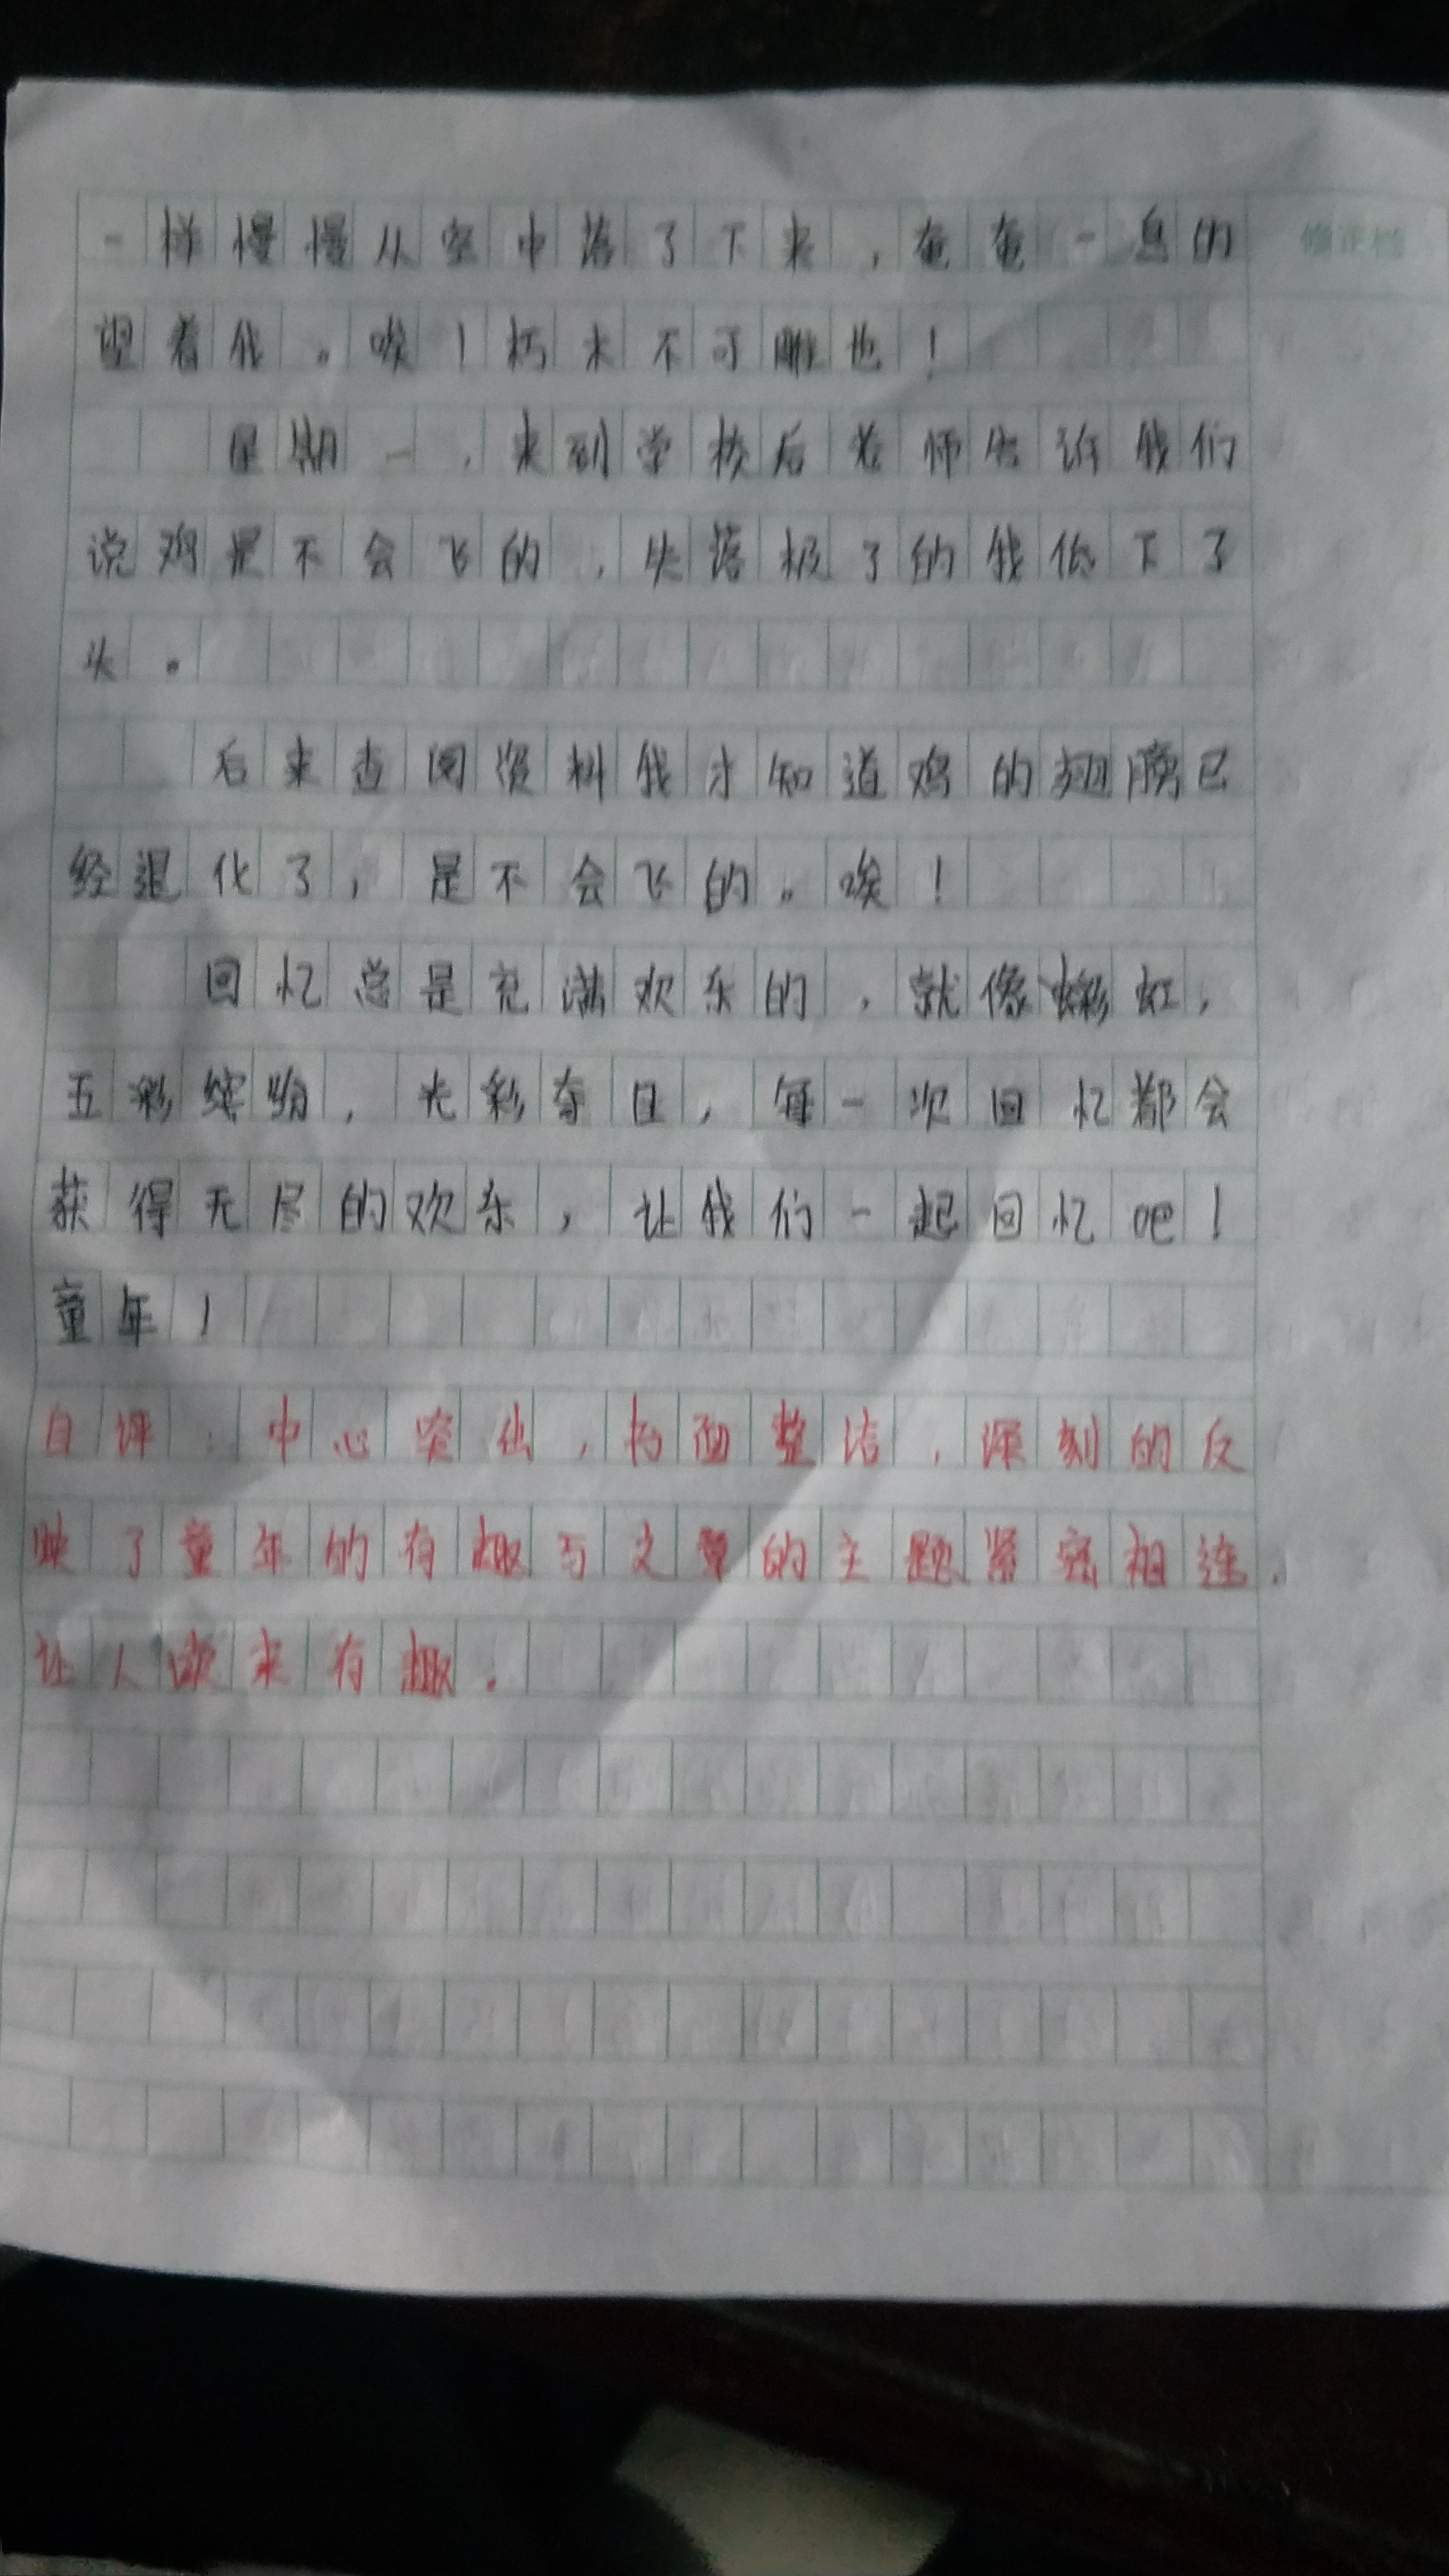 一样慢慢从空中落了下来，奄奄一息的
望着我。唉！朽木不可雕也！
星期一，来到学校后老师告诉我们
说鸡是不会飞的，失落极了的我低下了
头。
后来查阅资料我才知道鸡的翅膀已
经退化了，是不会飞的。唉！
回忆总是充满欢乐的，就像彩虹，
五彩缤纷，光彩夺目，每一次回忆都会
获得无尽的欢乐，让我们一起回忆吧！
童年！
自评：中心突出，书面整洁，深刻的反
映了童年的有趣与文章的主题紧密相连.
让人读来有趣.
修正栏